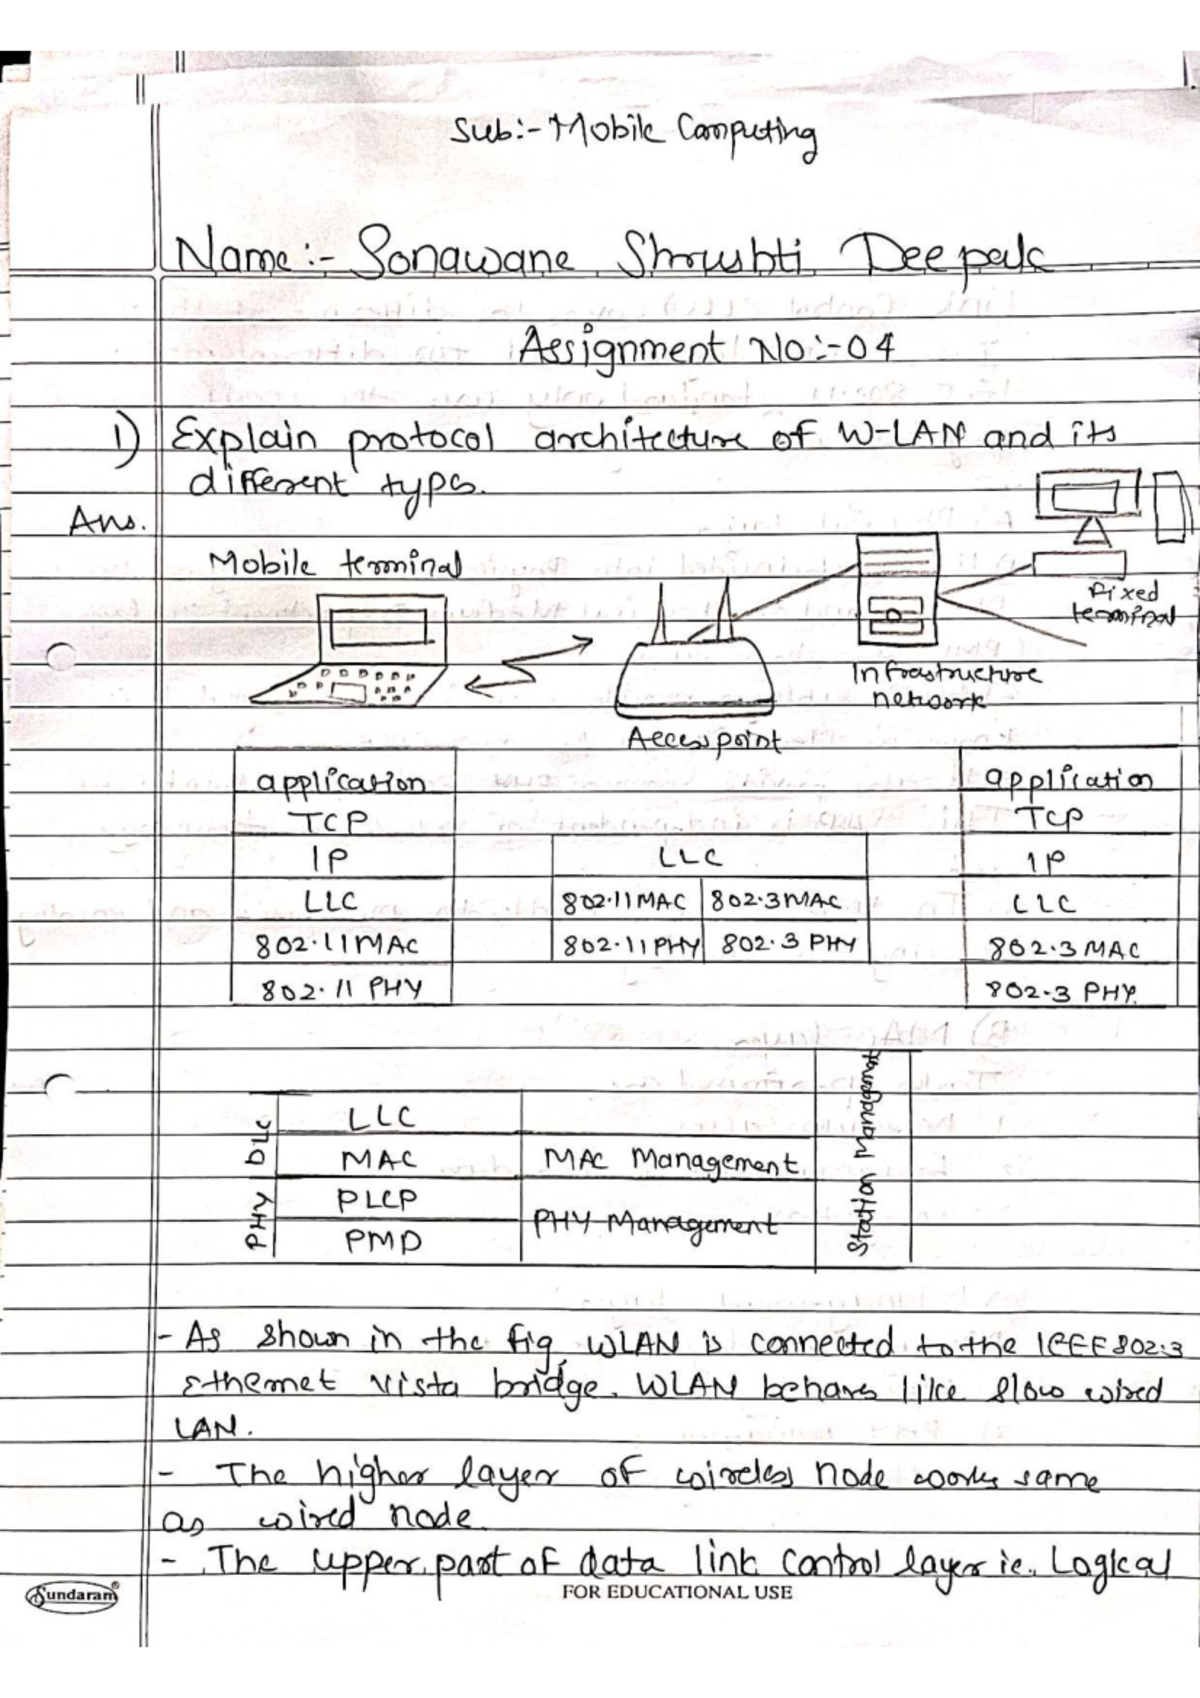 Sub:- Mobile Computing
Name:- Sonawane Shrushti Deepak
Assignment No:-04
1) Explain protocol architecture of W-LAN and its
different types.
Ans.
Mobile terminal
Fixed
terminal
Infrastructure
network
Access point
application
TCP
IP
LLC
802.11MAC
802.11 PHY
LLC
802.11MAC 802.3MAC
802.11PHY 802.3 PHY
application
TCP
IP
LLC
802.3 MAC
802.3 PHY
DLC
PHY
LLC
MAC
PLCP
PMD
MAC Management
PHY Management
Station Managemet
- As shown in the fig, WLAN is connected to the IEEE802.3
Ethernet vista bridge. WLAN behavs like slow wired
LAN.
- The higher layer of wireless node works same
as wired node.
- The upper part of data link control layer ie. Logical
Sundaram®
FOR EDUCATIONAL USE